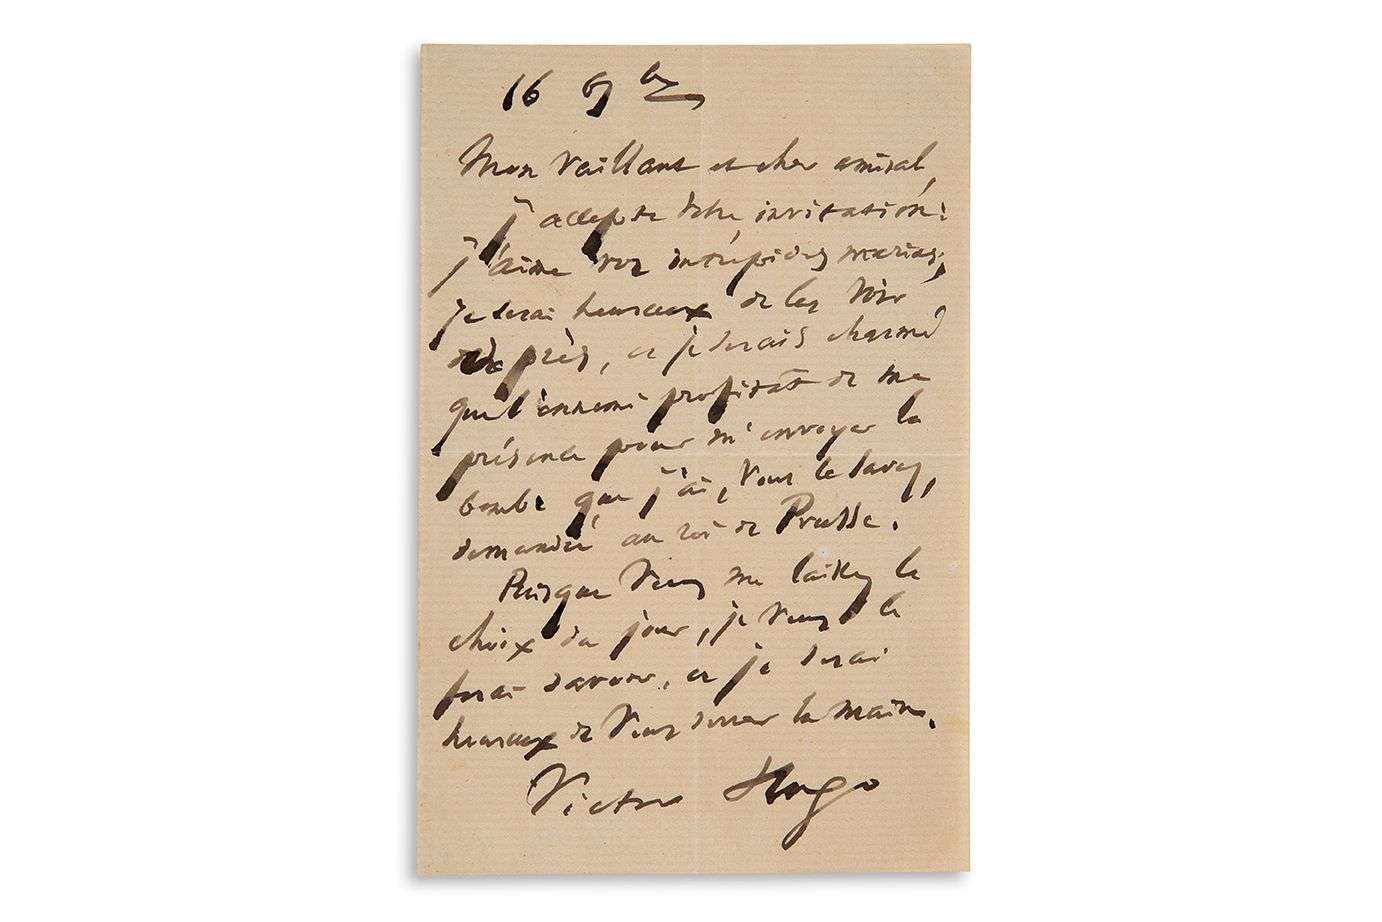 16 9bre
Mon vaillant et cher amiral,
j'accepte votre invitation.
j'aime vos intrépides marins,
je serai heureux de les voir
de près, et je serais charmé
que l'ennemi profitât de ma
présence pour m'envoyer la
bombe que j'ai, vous le savez,
demandée au roi de Prusse.
Puisque vous me laissez le
choix du jour, je vous le
ferai savoir, et je serai
heureux de vous serrer la main.
Victor Hugo